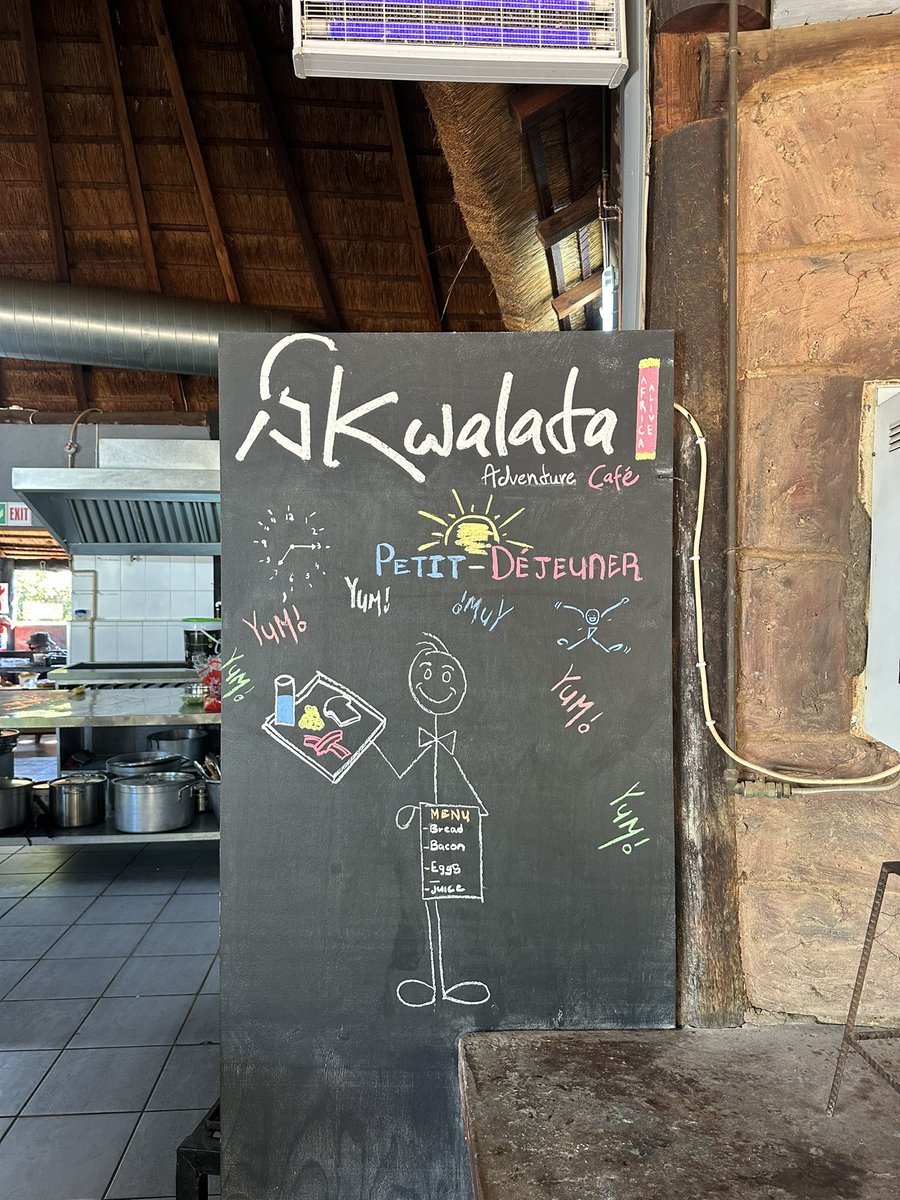 EXIT
Kwalata
AFRICA
ALIVE
Adventure Café
12
PETIT-DÉJEUNER
YUM!
YUM!
YUM!
YUM!
YUM!
YUM!
MENU
-Bread
-Bacon
-Eggs
-Juice